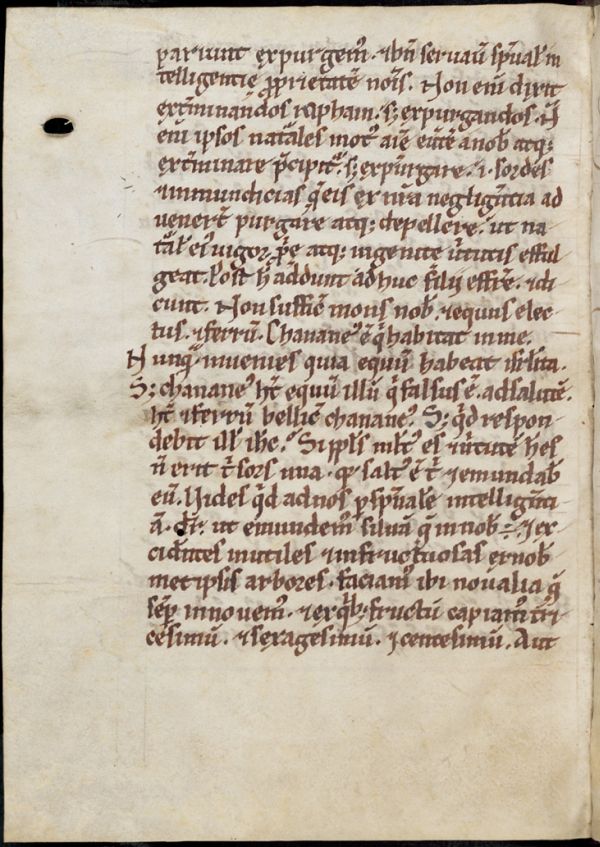 pariunt expurgem᷒ · ⁊ bn̄ servau̅ sp̅uał in
telligentie ꝓprietatē noi̅s. Non eni̅ dixit
ext̅minandos raphaim · s; expurgandos. N̅
eni̅ ipsos nat᷑ales mot᷒ ai̅e eu̅te̅ a nob̅ atq;
ext̅minare p̅cipit᷑ · s; expurgare · i · sordes
⁊ inmundicias q̅ eis ex nr̅a neglig̅tia ad
vener̅t purgare atq; depellere · ut na
t᷑ał ei᷒ vigor p̅e atq; ingenite u̅tutis efful
geat. Post h̅ addunt adhuc filii effre̅ · ⁊ di
cunt. Non suffic̅ mons nob̅ · ⁊ equus elec
tus · ⁊ ferru̅. Chanane᷒ ē q̅ habitat in me.
Nunq̅ invenies quia equu̅ habeat isr̅lita.
S; chanane᷒ ht̅ equu̅ illu̅ q̅ falsus ē · ad salutē.
ht̅ ⁊ ferru̅ bellic̅ chanane᷒. S; q̅d respon
debit ill᷒ ih̅c᷒. Si ppl̅s mlt᷒ es ⁊ u̅tutē h̅es
n̅ erit t̅ sors una · qr salt᷒ ē t̅ ⁊ emundab̅
eu̅. Vides q̅d ad nos p sp̅ualē intellig̅ti
a̅ · dr̅ · ut emundem᷒ silua̅ q in nob̅ ÷ · ⁊ ex
cide̅tes inutiles ⁊ infructuosas ex nob̅
met ipsis arbores · faciam᷒ ibi novalia q̅
sēp innovem᷒ · ⁊ ex q̅b; fructu̅ capiam᷒ tri
cesimu̅ · ⁊ sexagesimu̅ · ⁊ centesimu̅. Aut